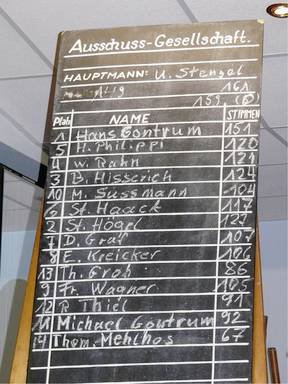 Ausschuss-Gesellschaft.
HAUPTMANN: U. Stengel
161
159 (6)
Platz NAME STIMMEN
1 Hans Gontrum 151
5 H. Philippi 120
W. Rahn 121
3 B. Hisserich 124
10 M. Sussmann 104
6 St. Haack 117
2 St. Högl 127
7 D. Graf 107
8 E. Kreicker 106
13 Th. Groh 86
9 Fr. Wagner 105
12 R Thiel 91
11 Michael Gontrum 92
14 Thom. Mehlhos 67